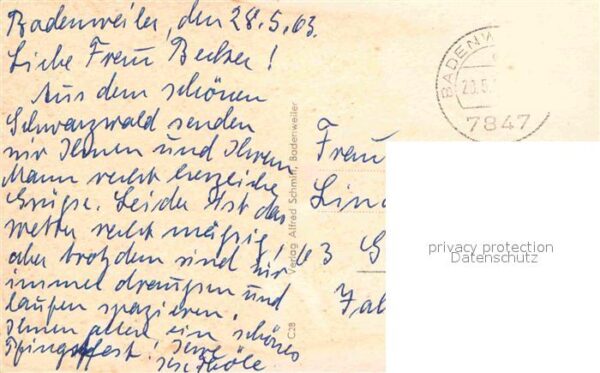 Badenweiler, den 28.5.63.
Liebe Frau Becker!
Aus dem schönen
Schwarzwald senden
wir Ihnen und Ihrem
Mann recht herzliche
Grüße. Leider ist das
Wetter recht mäßig!
aber trotzdem sind wir
immer draußen und
laufen spazieren.
Ihnen allen ein schönes
Pfingstfest! Ihre
BADENW
7847
C28
Verlag Alfred Schmitt, Badenweiler
Frau
Lin
63 G
Fal
privacy protection
Datenschutz